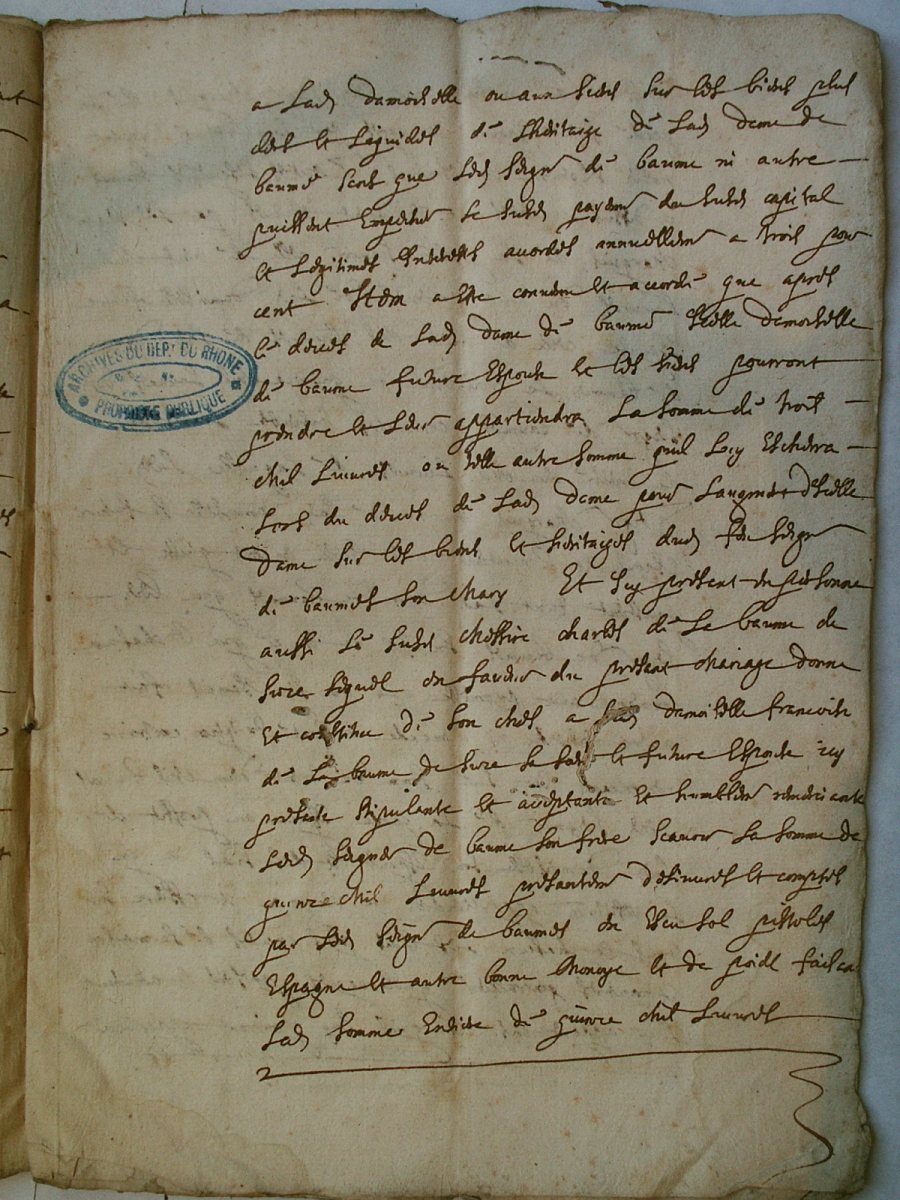 a lad damoiselle ou aux siens sur les biens plus
clers et liquides de lheritaige de lad dame de
baume sens que led seigr de baume ni autre
puissent empecher le susd payemt du susd capital
et legitimes interests accordes annuellemt a trois pour
cent Item a este convenu et accorde que apres
le deces de lad dame de baume icelle damoiselle
de baume future espouse et les siens pourront
prendre et leur appartiendra la somme de trois
mil livres ou telle autre somme quil luy escherra
lors du deces de lad dame pour laugment dicelle
dame sur les biens et heritaiges dud feu seigr
de baumes son mary Et icy present en personne
aussi le susd messire charles de la baume de
suze lequel en faveur du present mariage donne
et constitue de son chef a lad damoiselle francoise
de la baume de suze sa et future espouse icy
presente stipulante et acceptante et humblemt remerciante
led seigneur de baume son frere scauoir la somme de
quinze mil livres presantemt deliures et comptes
par led seigr de baumes en escu sol pistoles
espagne et autre bonne monoye et de poidz faisant
lad somme entiere de quinze mil livres
ARCHIVES DU DEPT. DU RHONE
PROPRIÉTÉ PUBLIQUE